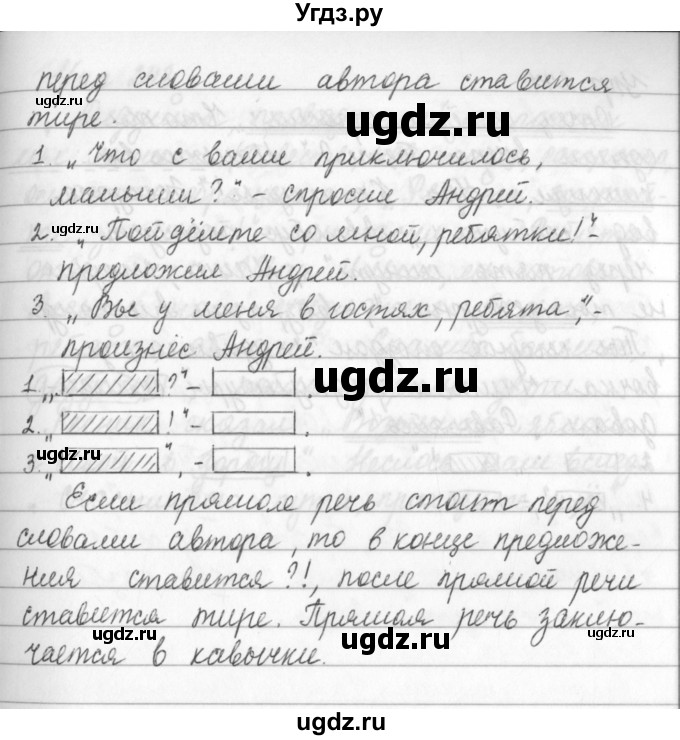 Угдз.ру
перед словами автора ставится
тире.
ugdz.ru
1. „Что с вами приключилось,
малыши?“ – спросил Андрей.
ugdz.ru
2. „Пойдёмте со мной, ребятки!“ –
предложил Андрей.
3. „Вы у меня в гостях, ребята“, –
произнёс Андрей.
ugdz.ru
1. „ ?“ – .
2. „ !“ – .
3. „ “, – .
ugdz.ru
Если прямая речь стоит перед
словами автора, то в конце предложе-
ния ставится ?!, после прямой речи
ставится тире. Прямая речь заклю-
ugdz.ru ugdz.ru ugdz.ru
чается в кавычки.
ugdz.ru